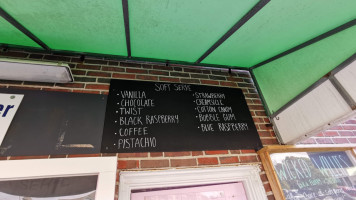 SOFT SERVE
• VANILLA
• CHOCOLATE
• TWIST
• BLACK RASPBERRY
• COFFEE
• PISTACHIO
• STRAWBERRY
• CREAMSICLE
• COTTON CANDY
• BUBBLE GUM
• BLUE RASPBERRY